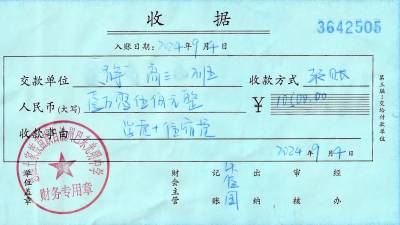 收据
3642505
入账日期: 2024年9月4日
交款单位 高三 班 收款方式 转账
人民币(大写) 壹万零伍佰元整 ¥10500.00
收款事由 学费+住宿费
2024年9月4日
第三联:交给付款单位
单位盖章
财会主管
记账
出纳
审核
经办
财务专用章